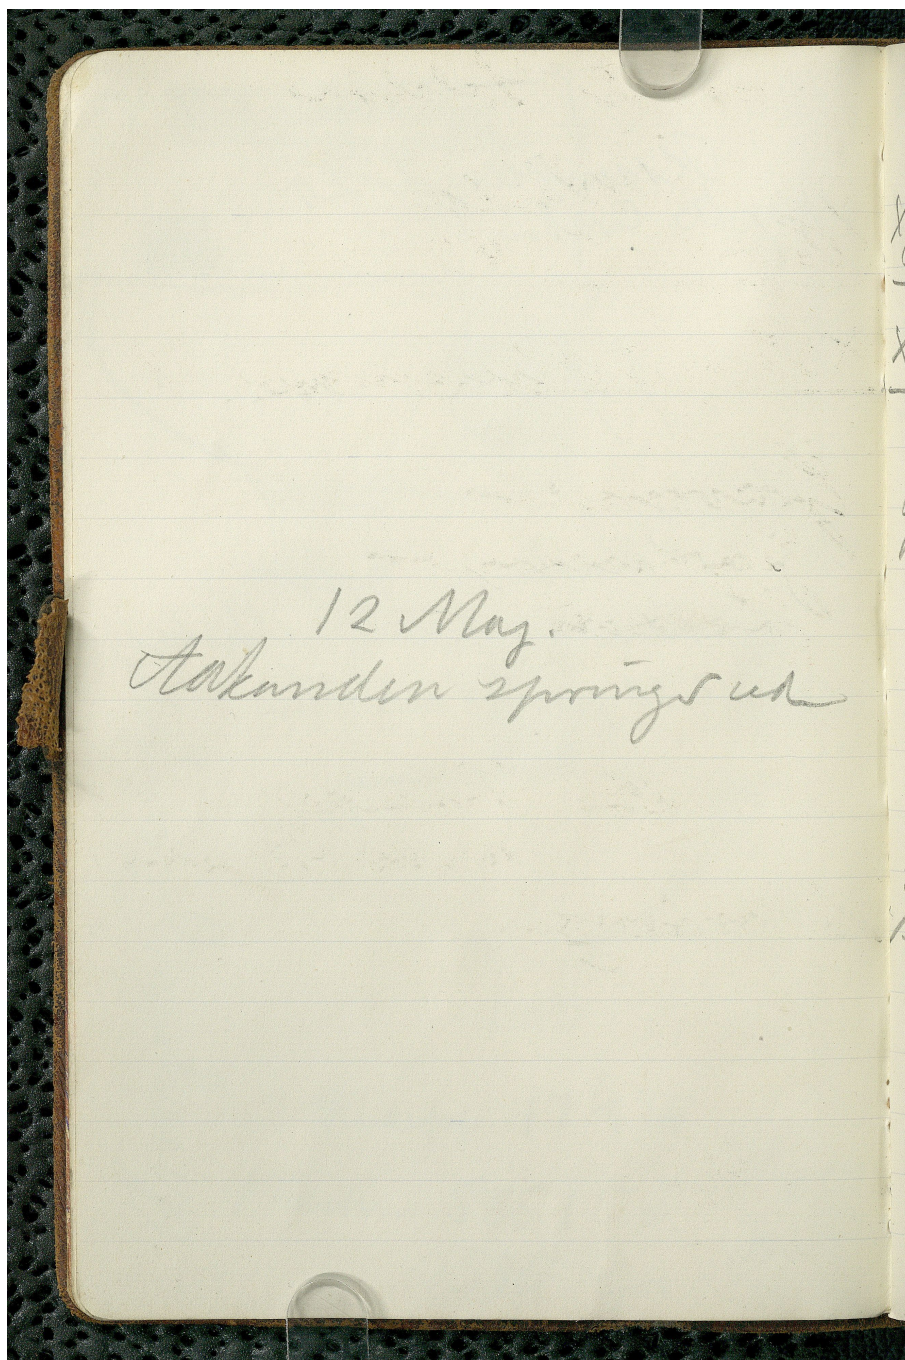 12 Maj.
Aakanden springer ud